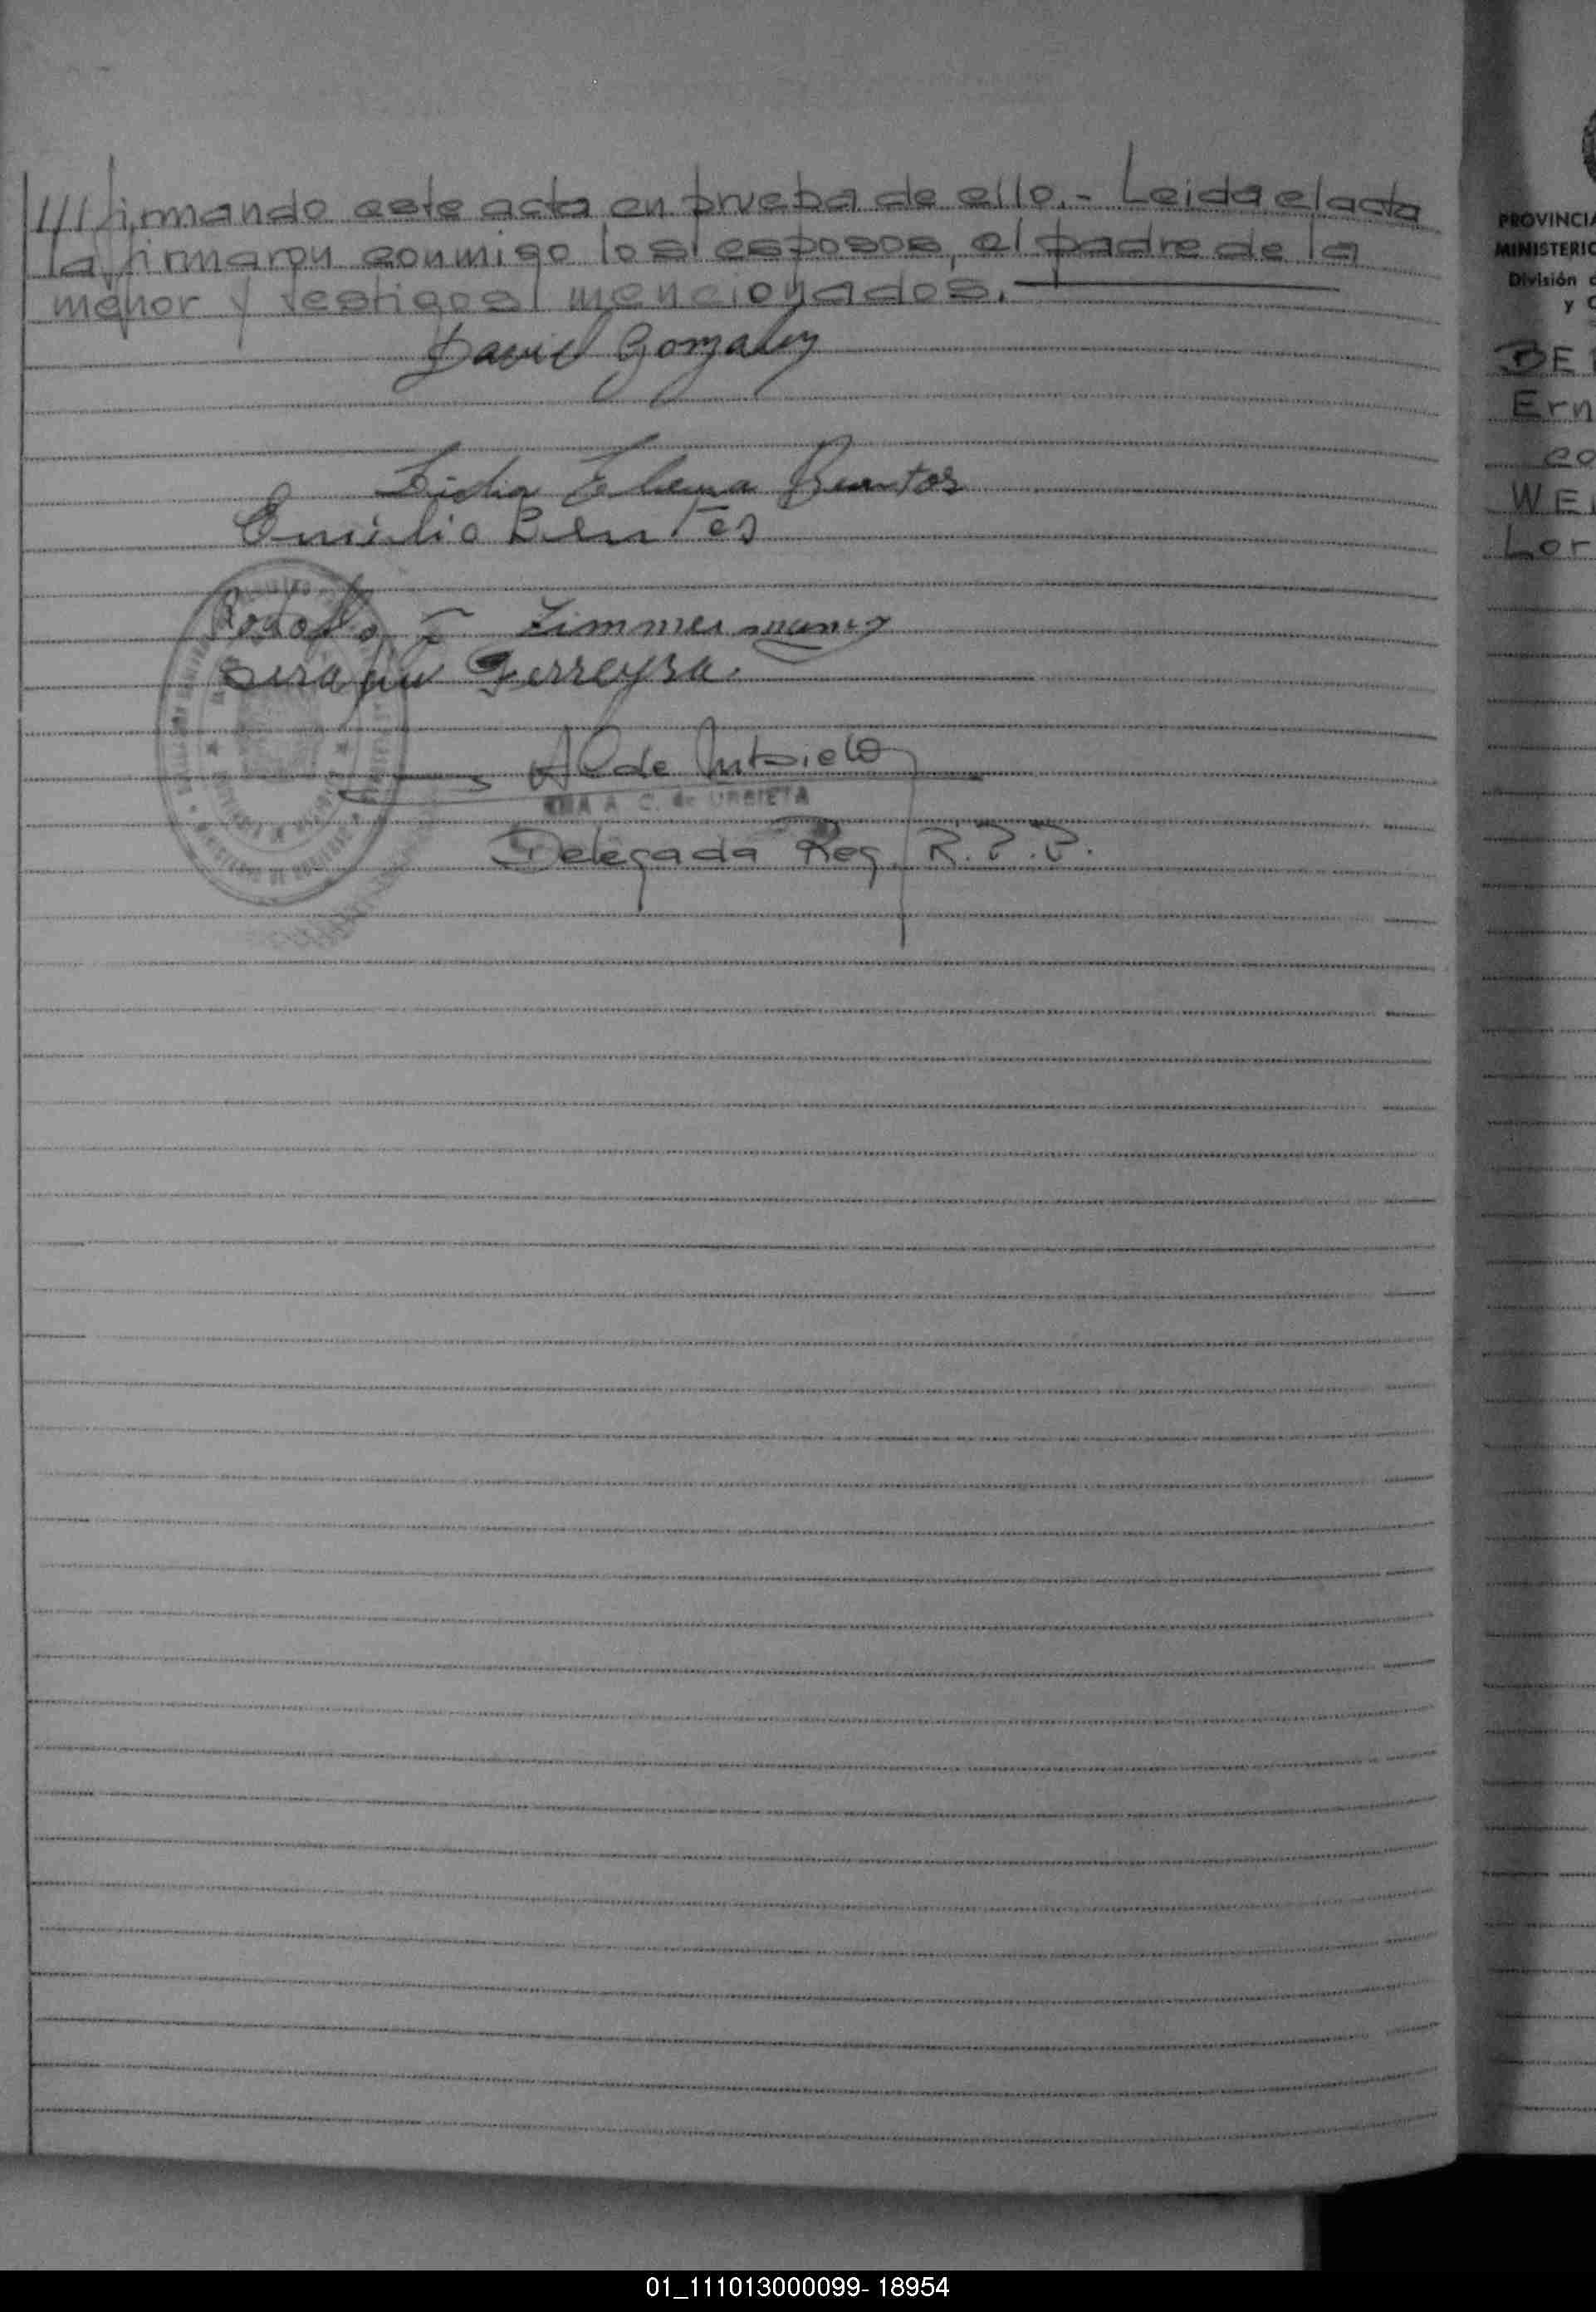 ///firmando este acta en prueba de ello.- Leida el acta
la firmaron conmigo los esposos, el padre de la
menor y testigos mencionados.
David Gonzalez
Lidia Elena Bentos
Emilio Bentos
Rodolfo E Zimmermann
Serafin Ferreyra.
A C de Urbieta
A. C. de URBIETA
Delegada Reg. R.P.P.
PROVINCIA
MINISTERIO
División
y
BE
Ern
co
WE
Lor
01_111013000099- 18954